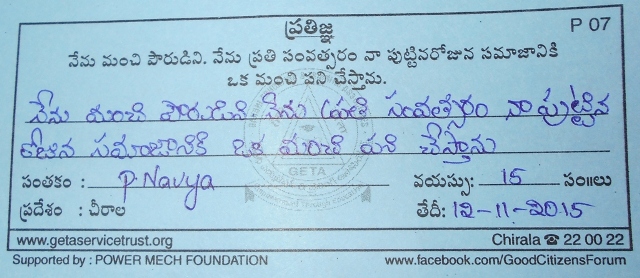 ప్రతిజ్ఞ
P 07
నేను మంచి పౌరుడిని. నేను ప్రతి సంవత్సరం నా పుట్టినరోజున సమాజానికి
ఒక మంచి పని చేస్తాను.
నేను మంచి పౌరుడిని నేను ప్రతి సంవత్సరం నా పుట్టిన
రోజున సమాజానికి ఒక మంచి పని చేస్తాను
సంతకం : P. Navya వయస్సు: 15 సం॥లు
ప్రదేశం : చీరాల తేదీ: 12-11-2015
GETA
www.getaservicetrust.org Chirala ☎ 22 00 22
Supported by : POWER MECH FOUNDATION www.facebook.com/GoodCitizensForum